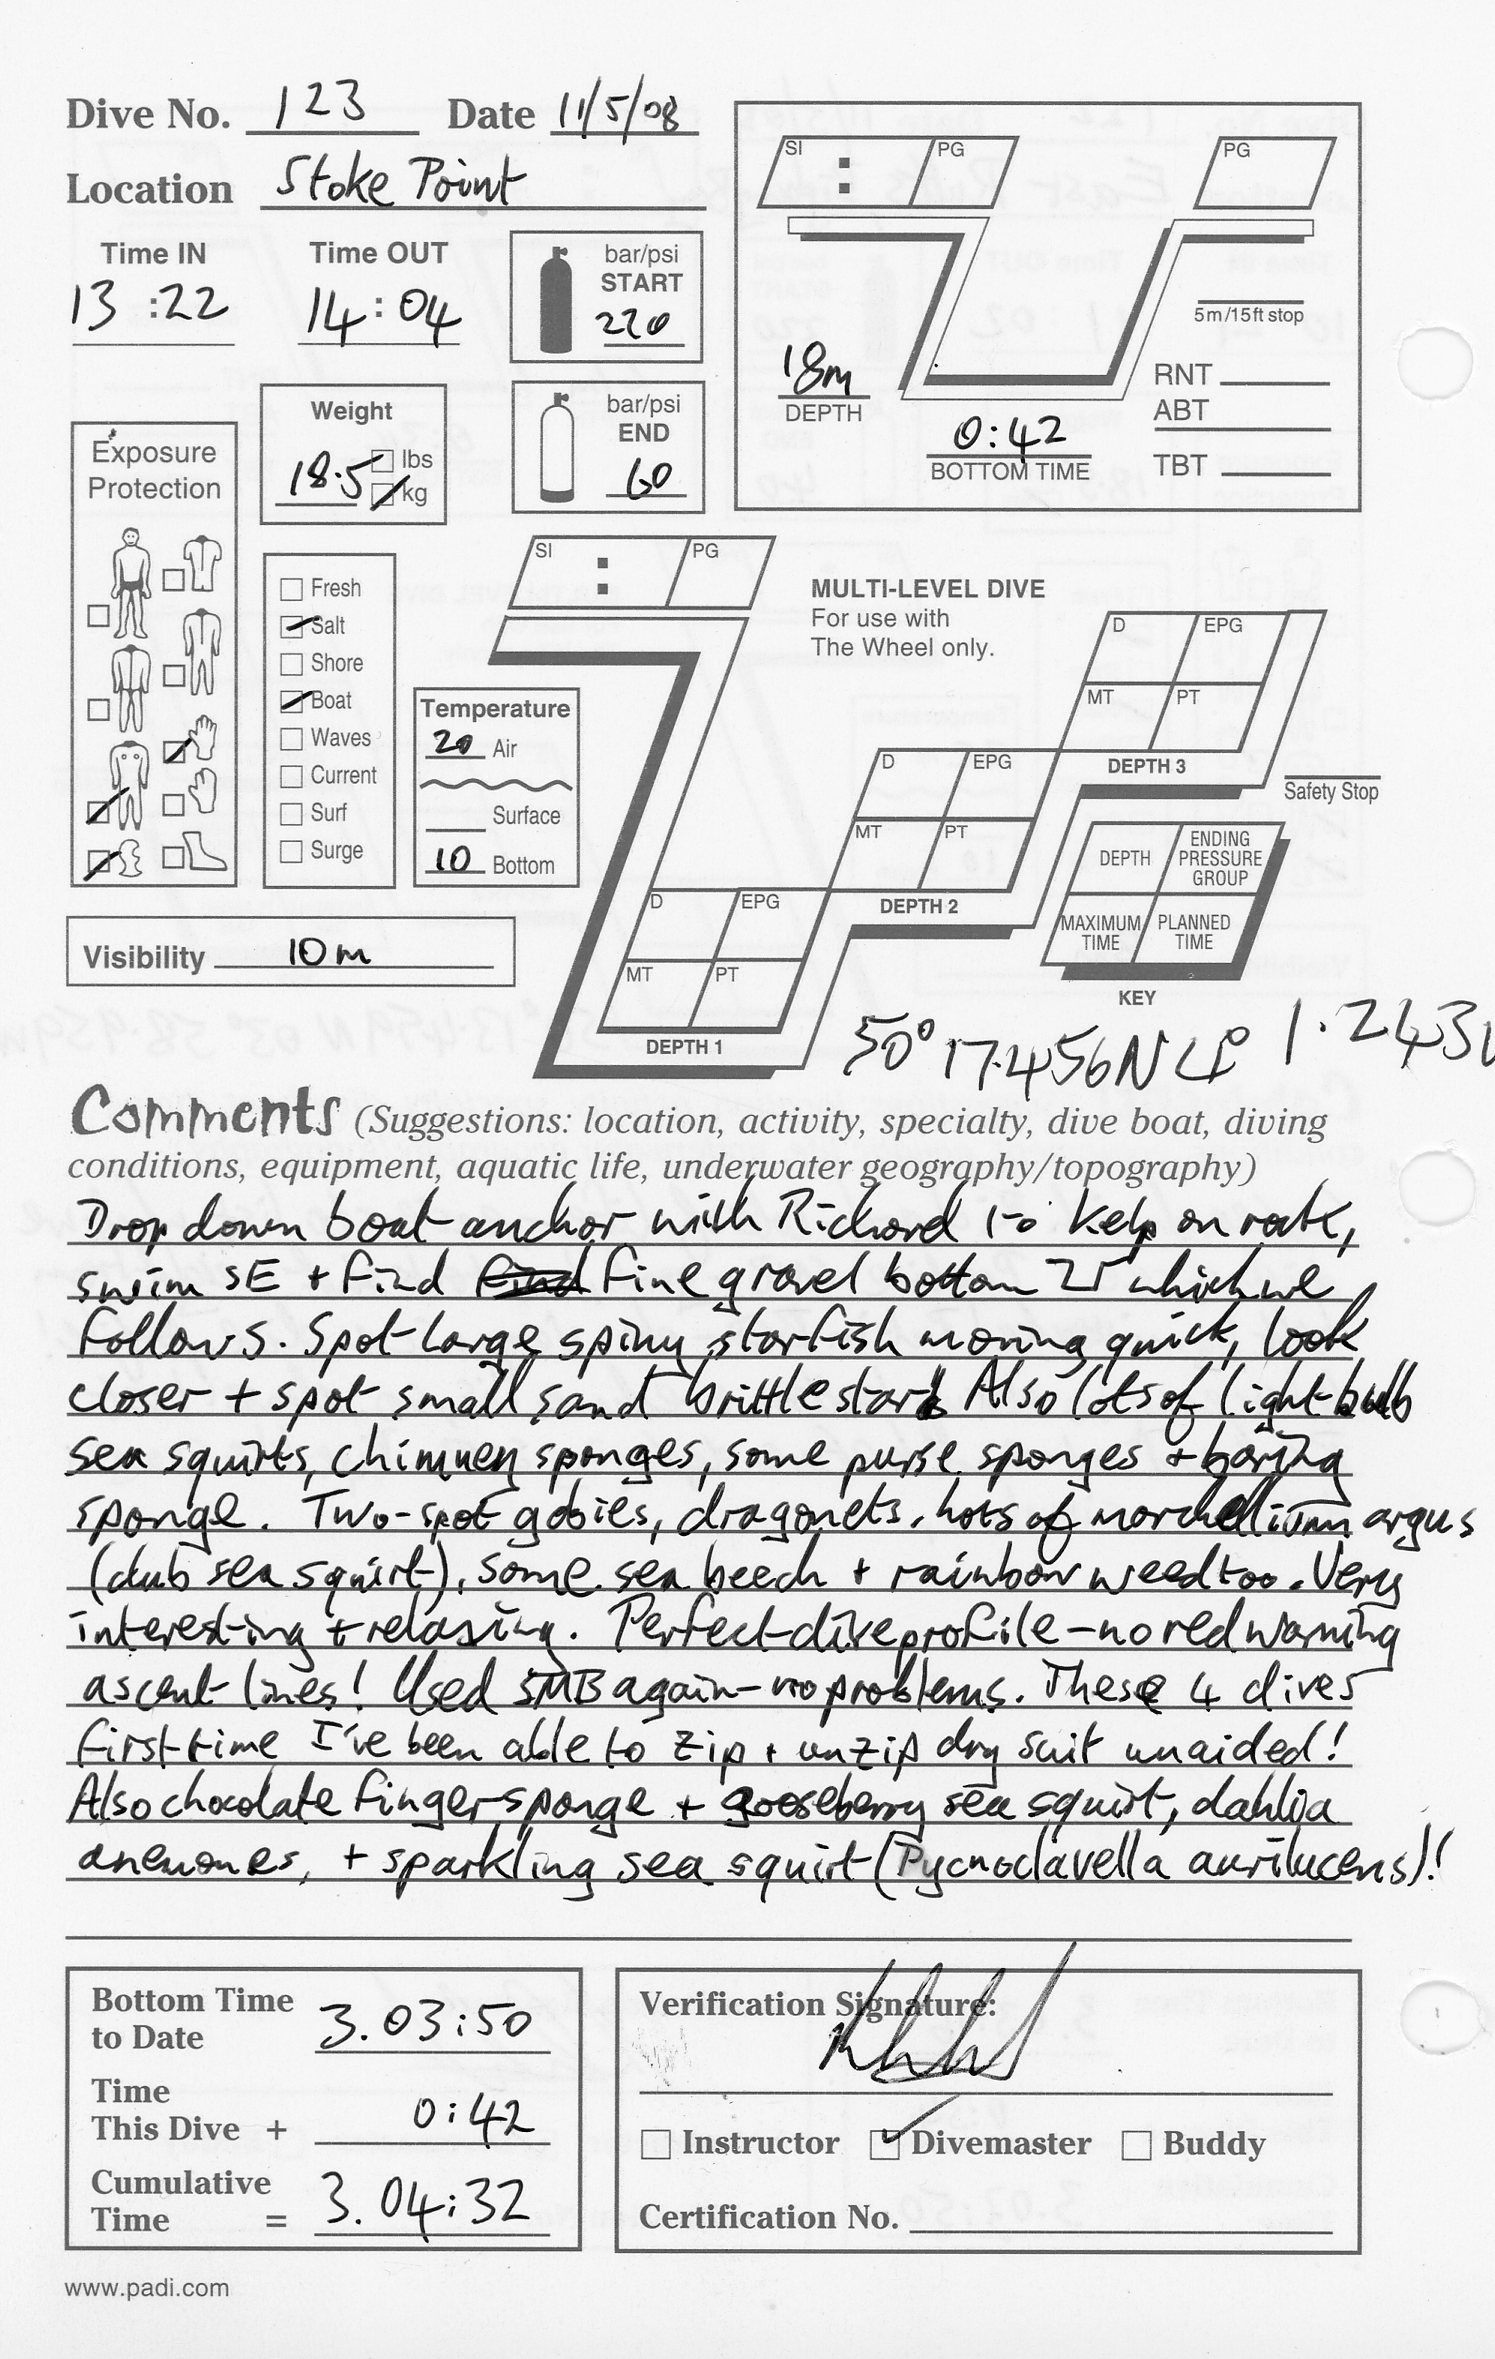 Dive No. 123 Date 11/5/08
Location Stoke Point
Time IN 13:22
Time OUT 14:04
bar/psi START 220
bar/psi END 60
Weight 18.5 lbs kg
Exposure Protection
Fresh
Salt
Shore
Boat
Waves
Current
Surf
Surge
Temperature
20 Air
Surface
10 Bottom
Visibility 10m
SI : PG PG
5m/15ft stop
18m DEPTH
0:42 BOTTOM TIME
RNT
ABT
TBT
SI : PG
MULTI-LEVEL DIVE
For use with
The Wheel only.
D EPG
MT PT
DEPTH 3
D EPG
MT PT
DEPTH 2
D EPG
MT PT
DEPTH 1
Safety Stop
DEPTH
ENDING PRESSURE GROUP
MAXIMUM TIME
PLANNED TIME
KEY
50° 17.456N 4° 1.243
Comments (Suggestions: location, activity, specialty, dive boat, diving
conditions, equipment, aquatic life, underwater geography/topography)
Drop down boat anchor with Richard to kelp on rock,
swim SE + find fine gravel bottom which we
follow S. Spot large spiny starfish moving quick, look
closer + spot small sand brittlestar. Also lots of light-bulb
sea squirts, chimney sponges, some purse sponges + boring
sponge. Two-spot gobies, dragonets, lots of morchellium argus
(club sea squirt), some sea beech + rainbow weed too. Very
interesting + relaxing. Perfect dive profile - no red warning
ascent lines! Used SMB again - no problems. These 4 dives
first time I've been able to zip + unzip dry suit unaided!
Also chocolate finger sponge + gooseberry sea squirt, dahlia
anemones, + sparkling sea squirt (Pycnoclavella aurilucens)!
Bottom Time to Date 3.03:50
Time This Dive + 0:42
Cumulative Time = 3.04:32
Verification Signature:
Instructor Divemaster Buddy
Certification No.
www.padi.com